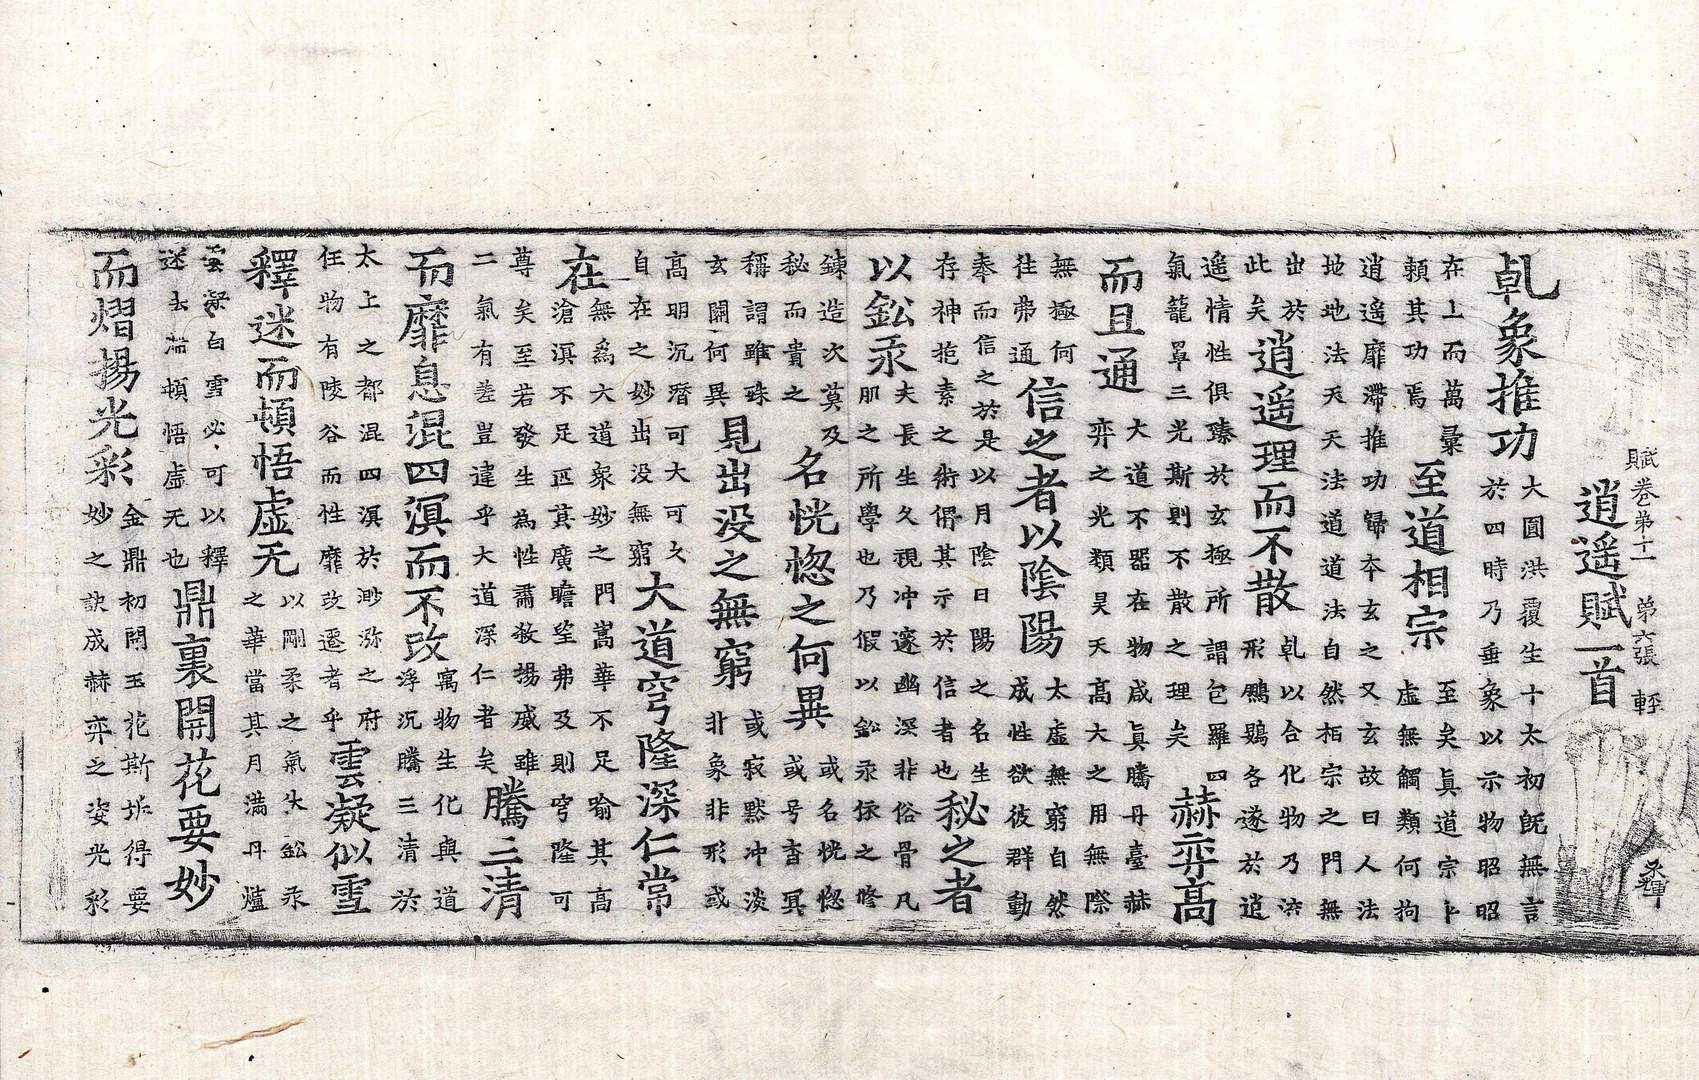 賦卷第十一　第六張　輕
永輝
逍遥賦一首
乹象推功
大圓洪覆生十太初旣無言
於四時乃垂象以示物昭昭
在上而萬彙
頼其功焉
至道相宗
至矣眞道宗卜
虛無觸類何拘
逍遥靡滯推功歸夲玄之又玄故曰人法
地地法天天法道道法自然相宗之門無
出於
此矣
逍遥理而不散
乹以合化物乃流
形鵬鷃各遂於逍
遥情性俱臻於玄極所謂包羅四
氣籠罩三光斯則不散之理矣
赫弈高
而且通
大道不器在物咸眞騰丹臺赫
弈之光類昊天髙大之用無際
無極何
往弗通
信之者以隂陽
太虛無窮自然
成性欲彼群動
奉而信之於是以月隂日陽之名生
存神抱素之術俻其示於信者也
秘之者
以鈆汞
夫長生久視冲邃幽深非俗骨凡
肌之所學也乃假以鈆汞依之脩
鍊造次莫及
秘而貴之
名恍惚之何異
或名恍惚
或号杳冥
稱謂雖殊
玄關何異
見出没之無窮
或寂黙冲淡
非象非形或
高明沉濳可大可久
自在之妙出没無窮
大道穹隆深仁常
在
無爲大道衆妙之門嵩華不足喻其高
滄溟不足匹其廣瞻望弗及則穹隆可
尊矣至若發生為性肅敎揚威雖
二氣有差豈違乎大道深仁者矣
騰三清
而靡息混四溟而不改
寓物生化與道
浮沉騰三清於
太上之都混四溟於渺㳽之府
任物有陵谷而性靡改遷者乎
雲凝似雪
釋迷而頓悟虛无
以剛柔之氣伏鈆汞
之華當其月滿丹爐
雲凝白雪必可以釋
迷去滯頓悟虛无也
鼎裏開花要妙
而熠揚光彩
金鼎初開玉花斯坼得要
妙之訣成赫弈之姿光彩